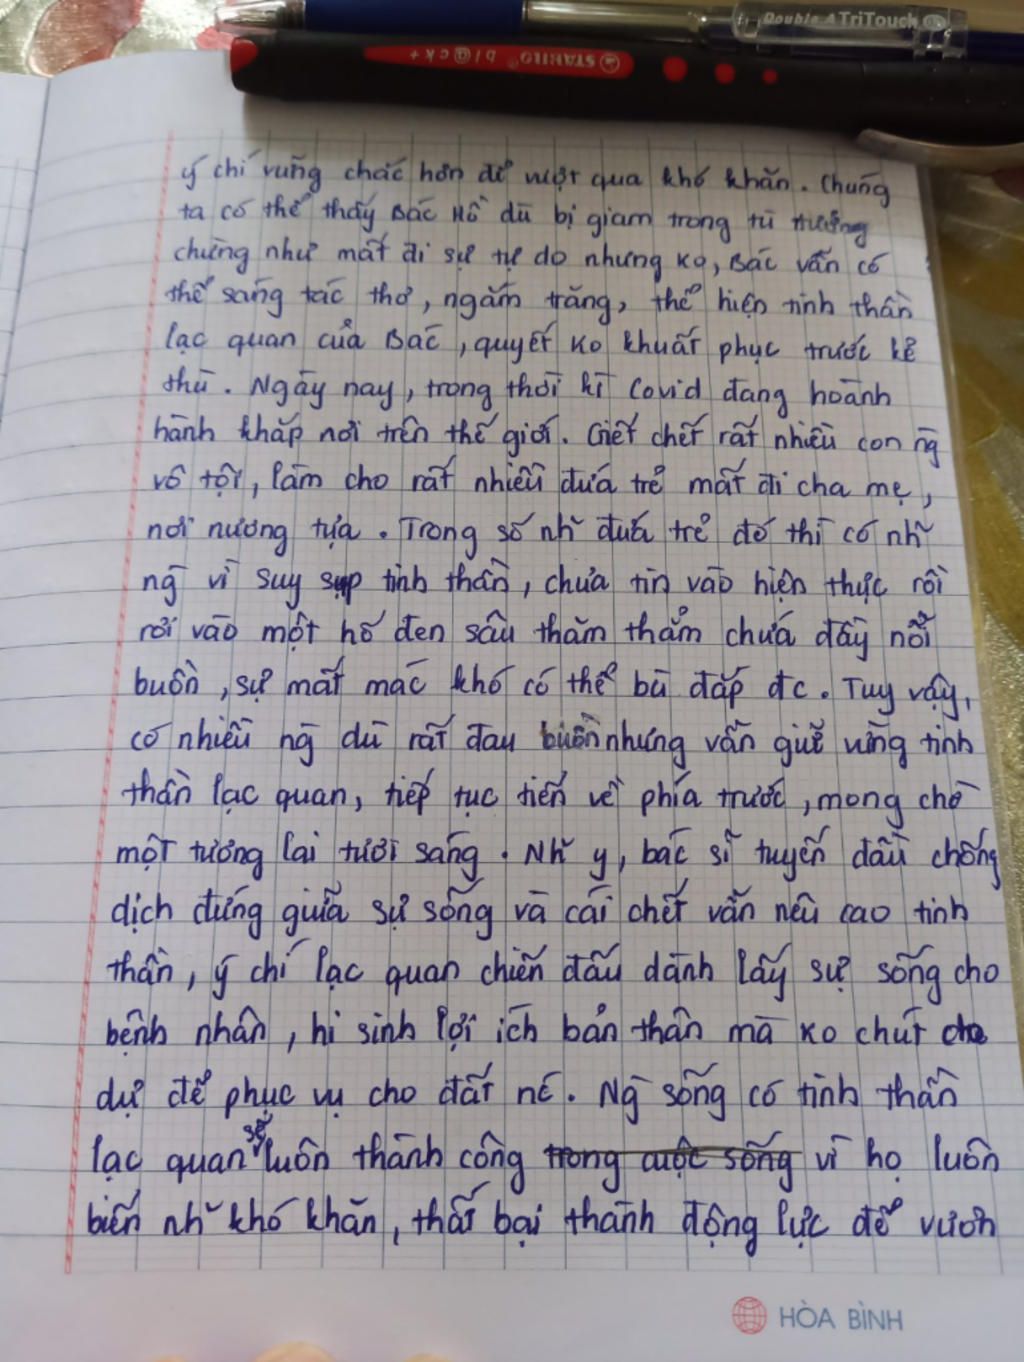 Double A TriTouch
STABILO bl@ck+
ý chí vững chắc hơn để vượt qua khó khăn. Chúng
ta có thể thấy Bác Hồ dù bị giam trong tù tưởng
chừng như mất đi sự tự do nhưng ko, Bác vẫn có
thể sáng tác thơ, ngắm trăng, thể hiện tinh thần
lạc quan của Bác, quyết ko khuất phục trước kẻ
thù. Ngày nay, trong thời kì Covid đang hoành
hành khắp nơi trên thế giới. Giết chết rất nhiều con ng̀
vô tội, làm cho rất nhiều đứa trẻ mất đi cha mẹ,
nơi nương tựa. Trong số nh~ đứa trẻ đó thì có nh~
ng̀ vì suy sụp tinh thần, chưa tin vào hiện thực rồi
rơi vào một hố đen sâu thăm thẳm chứa đầy nỗi
buồn, sự mất mác khó có thể bù đắp đc. Tuy vậy,
có nhiều ng̀ dù rất đau buồn nhưng vẫn giữ vững tinh
thần lạc quan, tiếp tục tiến về phía trước, mong chờ
một tương lai tươi sáng. Nh~ y, bác sĩ tuyến đầu chống
dịch đứng giữa sự sống và cái chết vẫn nêu cao tinh
thần, ý chí lạc quan chiến đấu dành lấy sự sống cho
bệnh nhân, hi sinh lợi ích bản thân mà ko chút do
dự để phục vụ cho đất nć. Ng̀ sống có tinh thần
lạc quan sẽ luôn thành công trong cuộc sống vì họ luôn
biến nh~ khó khăn, thất bại thành động lực để vươn
HÒA BÌNH